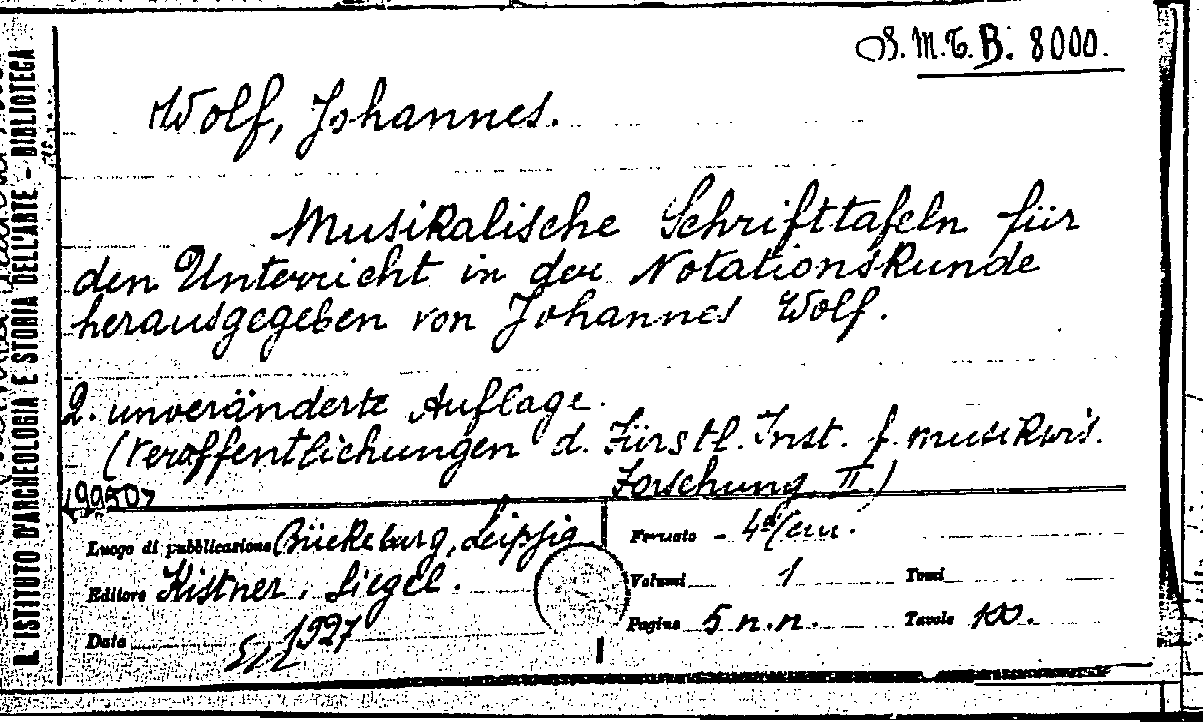 S.M.T.B. 8000.
R. ISTITUTO D'ARCHEOLOGIA E STORIA DELL'ARTE - BIBLIOTECA
Wolf, Johannes.
Musikalische Schrifttafeln für
den Unterricht in der Notationskunde
herausgegeben von Johannes Wolf.
2. unveränderte Auflage.
(Veröffentlichungen d. Fürstl. Inst. f. musikwis.
Forschung II.)
Luogo di pubblicazione Bückeburg, Leipzig
Editore Kistner, Siegel.
Data 1927
Formato - 4º/em.
Volumi 1 Tomi
Pagine 5 n.n. Tavole 100.